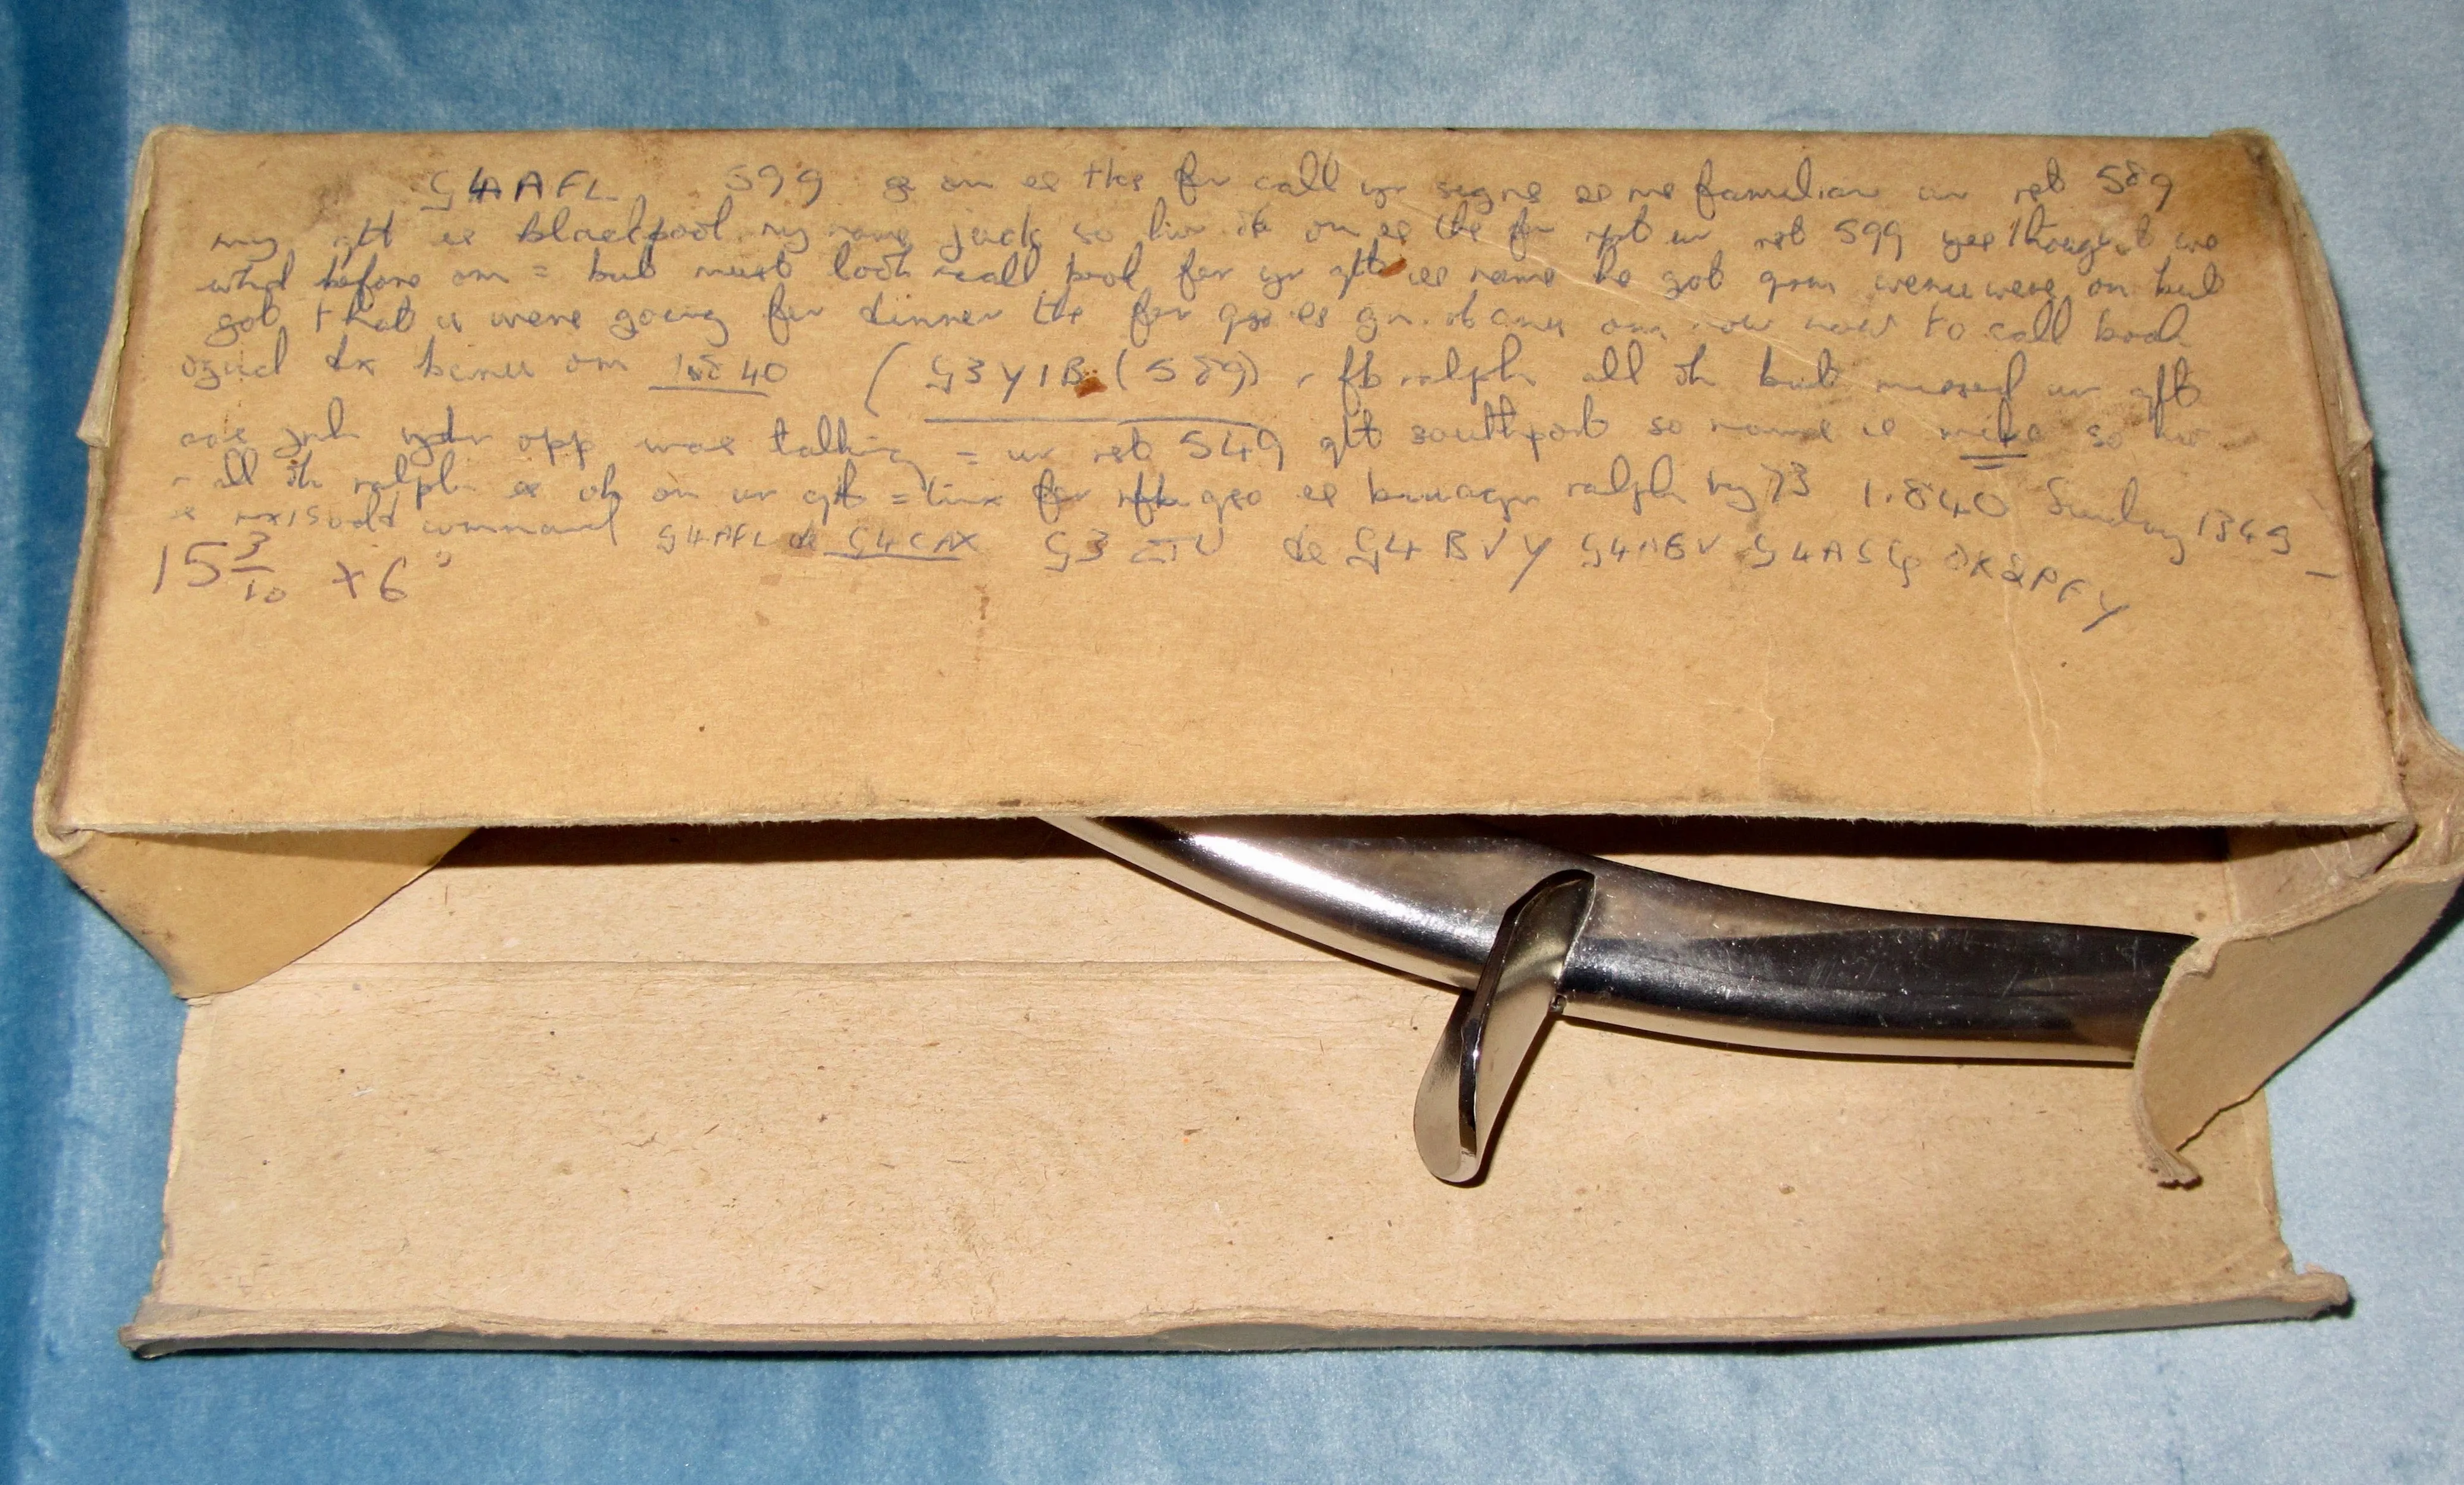 G4AFL 599 ge om es tks fr call yr signs es me familiar ur rst 589
my qth is blackpool my name jack so hw ok om es tks fr rpt ur rst 599 yes thought we
wkd before om = but must look call book for yr qth es name he got qrm wenu were on but
got that u were going for dinner tks for qso es gn. bcnu om now now to call book
dx bcnu om 1840 ( G3YIB (589) r fb ralph all ok but missed ur qth
opp was talking = ur rst 549 qth southport so name is mike so hw
r all ok ralph es ok on ur qth = tnx for nfb qso es ralph my 73 1.840 Sunday 1349
command G4AFL de G4CAX G3 de G4BVY G4ABV G4ASG OK2PFY
15 3/10 x 6"